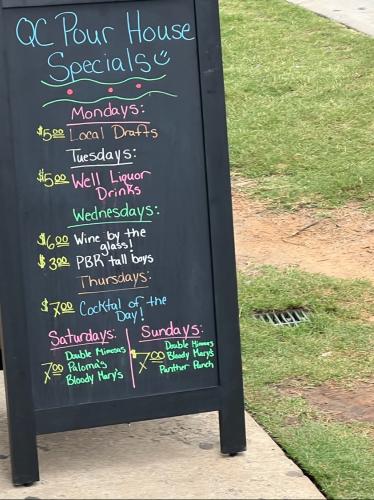 QC Pour House
Specials
Mondays:
$5.00 Local Drafts
Tuesdays:
$5.00 Well Liquor
Drinks
Wednesdays:
$6.00 Wine by the
glass!
$3.00 PBR tall boys
Thursdays:
$7.00 Cocktal of the
Day!
Saturdays: Sundays:
Double Mimosas Double Mimosas
7.00 Paloma's $7.00 Bloody Mary's
Bloody Mary's Panther Punch